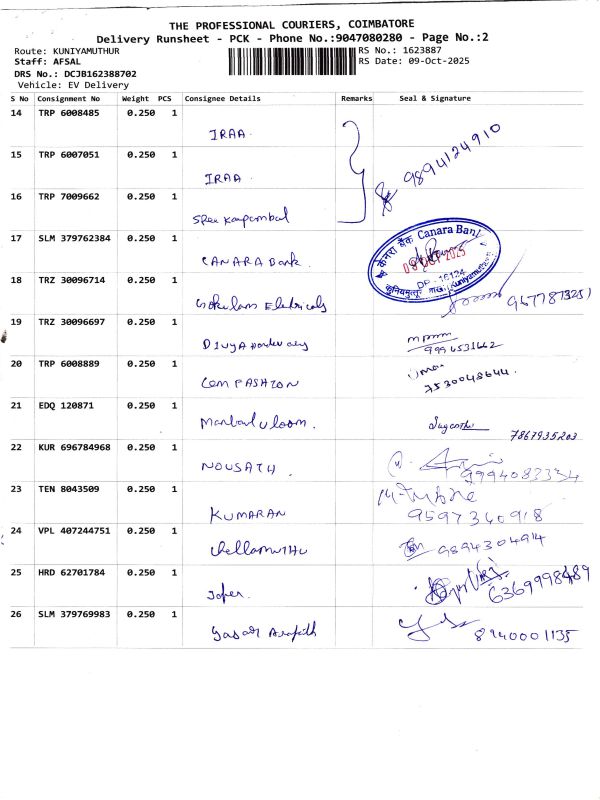 THE PROFESSIONAL COURIERS, COIMBATORE
Delivery Runsheet - PCK - Phone No.:9047080280 - Page No.:2
Route: KUNIYAMUTHUR RS No.: 1623887
Staff: AFSAL RS Date: 09-Oct-2025
DRS No.: DCJB162388702
Vehicle: EV Delivery
S No Consignment No Weight PCS Consignee Details Remarks Seal & Signature
14 TRP 6008485 0.250 1
IRAA.
15 TRP 6007051 0.250 1
IRAA. 9894124910
16 TRP 7009662 0.250 1
Sree
17 SLM 379762384 0.250 1
CANARA Bank.
केनरा बैंक Canara Bank
09 OCT 2025
DP - 16124
Kuniyamuthur
18 TRZ 30096714 0.250 1
Gokulam Eletricals
19 TRZ 30096697 0.250 1
9994531662
20 TRP 6008889 0.250 1
7530048644.
21 EDQ 120871 0.250 1
7867935203
22 KUR 696784968 0.250 1
NOUSATH. 9994083334
23 TEN 8043509 0.250 1
KUMARAN 9597340918
24 VPL 407244751 0.250 1
chellamuthu 9894304914
25 HRD 62701784 0.250 1
26 SLM 379769983 0.250 1
Yasar Arafath 8940001135